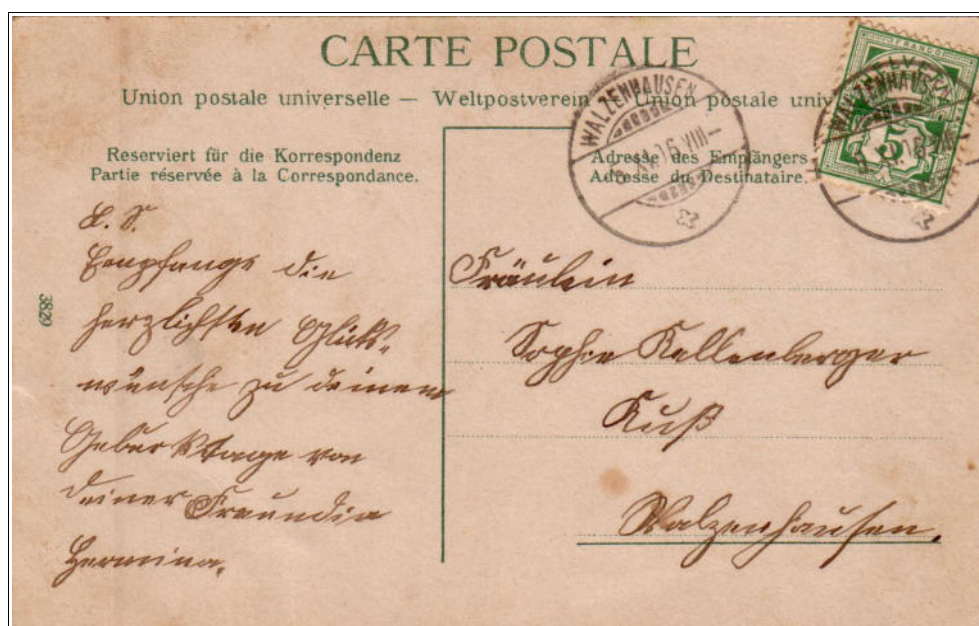 CARTE POSTALE
Union postale universelle — Weltpostverein — Union postale univ
Reserviert für die Korrespondenz
Partie réservée à la Correspondance.
Adresse des Empfängers
Adresse du Destinataire.
WALZENHAUSEN
VIII
WALZENHAUSEN
FRANCO
HELVETIA
5
L. S.
Empfange die
herzlichsten Glücks-
wünsche zu deinem
Geburtstage von
deiner Freundin
Hermina.
3829
Fräulein
Sophie Kellenberger
Walzenhausen.